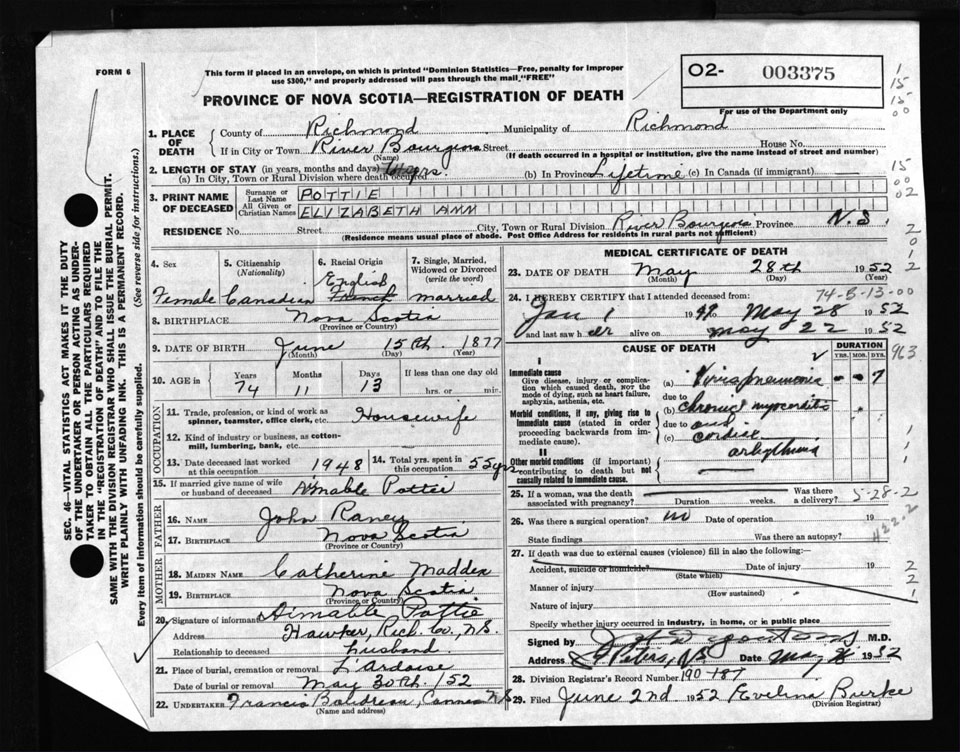 FORM 6
This form if placed in an envelope, on which is printed "Dominion Statistics—Free, penalty for improper
use $300," and properly addressed will pass through the mail "FREE"
O2- 003375
PROVINCE OF NOVA SCOTIA—REGISTRATION OF DEATH
For use of the Department only
1. PLACE OF DEATH
County of Richmond Municipality of Richmond
If in City or Town River Bourgeois Street House No.
(Name) (If death occurred in a hospital or institution, give the name instead of street and number)
2. LENGTH OF STAY (in years, months and days)
(a) In City, Town or Rural Division where death occurred yrs. (b) In Province Lifetime (c) In Canada (if immigrant)
3. PRINT NAME OF DECEASED
Surname or Last Name POTTIE
All Given or Christian Names ELIZABETH ANN
RESIDENCE No. Street City, Town or Rural Division River Bourgeois Province N.S
(Residence means usual place of abode. Post Office Address for residents in rural parts not sufficient)
4. Sex 5. Citizenship (Nationality) 6. Racial Origin 7. Single, Married, Widowed or Divorced (write the word)
English
Female Canadian French married
8. BIRTHPLACE Nova Scotia
(Province or Country)
9. DATE OF BIRTH June 15th. 1877
(Month) (Day) (Year)
10. AGE in Years Months Days If less than one day old
74 11 13 hrs. or min.
OCCUPATION
11. Trade, profession, or kind of work as spinner, teamster, office clerk, etc. Housewife
12. Kind of industry or business, as cotton-mill, lumbering, bank, etc.
13. Date deceased last worked at this occupation 1948 14. Total yrs. spent in this occupation 55 yrs
15. If married give name of wife or husband of deceased Aimable Pottie
FATHER
16. NAME John Raney
17. BIRTHPLACE Nova Scotia
(Province or Country)
MOTHER
18. MAIDEN NAME Catherine Madden
19. BIRTHPLACE Nova Scotia
(Province or Country)
20. Signature of informant Aimable Pottie
Address Hawker, Rich. Co., N.S.
Relationship to deceased husband.
21. Place of burial, cremation or removal L'Ardoise
Date of burial or removal May 30th. 152
22. UNDERTAKER Francis N.S
(Name and address)
MEDICAL CERTIFICATE OF DEATH
23. DATE OF DEATH May 28th 1952
(Month) (Day) (Year)
74-B-13-00
24. I HEREBY CERTIFY that I attended deceased from:
Jan 1 19 to May 28 1952
and last saw her alive on May 22 1952
CAUSE OF DEATH DURATION
YRS. MOS. DYS.
963
I
Immediate cause
Give disease, injury or complication which caused death, NOT the mode of dying, such as heart failure, asphyxia, asthenia, etc.
(a) pneumonia - - 7
due to
Morbid conditions, if any, giving rise to immediate cause (stated in order proceeding backwards from immediate cause).
(b) chronic myocarditis
due to and
(c) cardiac
arhythmia
II
Other morbid conditions (if important) contributing to death but not causally related to immediate cause.
25. If a woman, was the death associated with pregnancy? Duration weeks. Was there a delivery?
5-28-2
26. Was there a surgical operation? no Date of operation 19
State findings Was there an autopsy?
27. If death was due to external causes (violence) fill in also the following:—
Accident, suicide or homicide? Date of injury 19
(State which)
Manner of injury
(How sustained)
Nature of injury
Specify whether injury occurred in Industry, in home, or in public place
Signed by M.D.
Address St Peters, N.S. Date May 1952
28. Division Registrar's Record Number 190-187
29. Filed June 2nd 1952 Evelina Burke
(Division Registrar)
SEC. 46—VITAL STATISTICS ACT MAKES IT THE DUTY
OF THE UNDERTAKER OR PERSON ACTING AS UNDER-
TAKER TO OBTAIN ALL THE PARTICULARS REQUIRED
IN THE "REGISTRATION OF DEATH" AND TO FILE THE
SAME WITH THE DIVISION REGISTRAR WHO SHALL ISSUE THE BURIAL PERMIT.
WRITE PLAINLY WITH UNFADING INK. THIS IS A PERMANENT RECORD.
Every item of information should be carefully supplied. (See reverse side for instructions.)